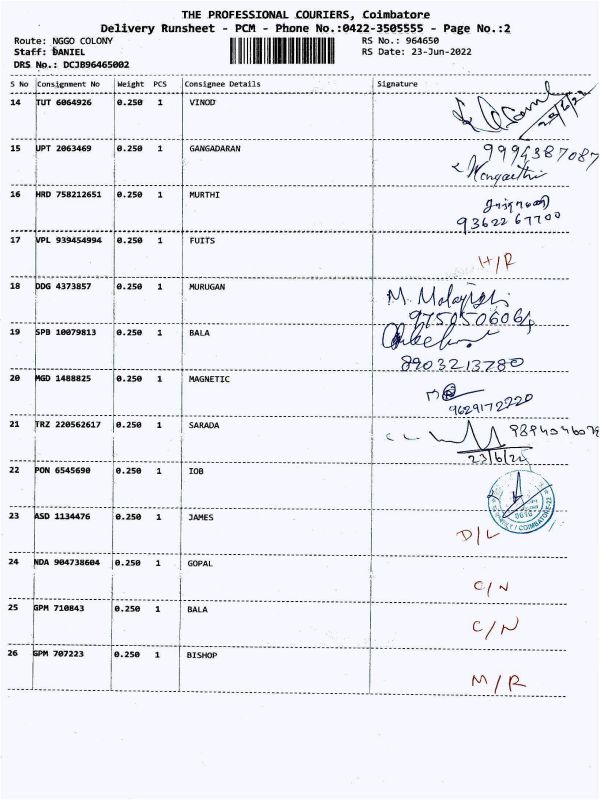 THE PROFESSIONAL COURIERS, Coimbatore
Delivery Runsheet - PCM - Phone No.:0422-3505555 - Page No.:2
Route: NGGO COLONY RS No.: 964650
Staff: DANIEL RS Date: 23-Jun-2022
DRS No.: DCJB96465002
S No Consignment No Weight PCS Consignee Details Signature
14 TUT 6064926 0.250 1 VINOD
15 UPT 2063469 0.250 1 GANGADARAN 9994387087
16 HRD 758212651 0.250 1 MURTHI
93622 67700
17 VPL 939454994 0.250 1 FUITS
H/R
18 DDG 4373857 0.250 1 MURUGAN
9750506064
19 SPB 10079813 0.250 1 BALA
8903213780
20 MGD 1488825 0.250 1 MAGNETIC
9629172220
21 TRZ 220562617 0.250 1 SARADA
23/6/22
22 PON 6545690 0.250 1 IOB
23 ASD 1134476 0.250 1 JAMES
D/L
24 NDA 904738604 0.250 1 GOPAL
C/N
25 GPM 710843 0.250 1 BALA
C/N
26 GPM 707223 0.250 1 BISHOP
M/R